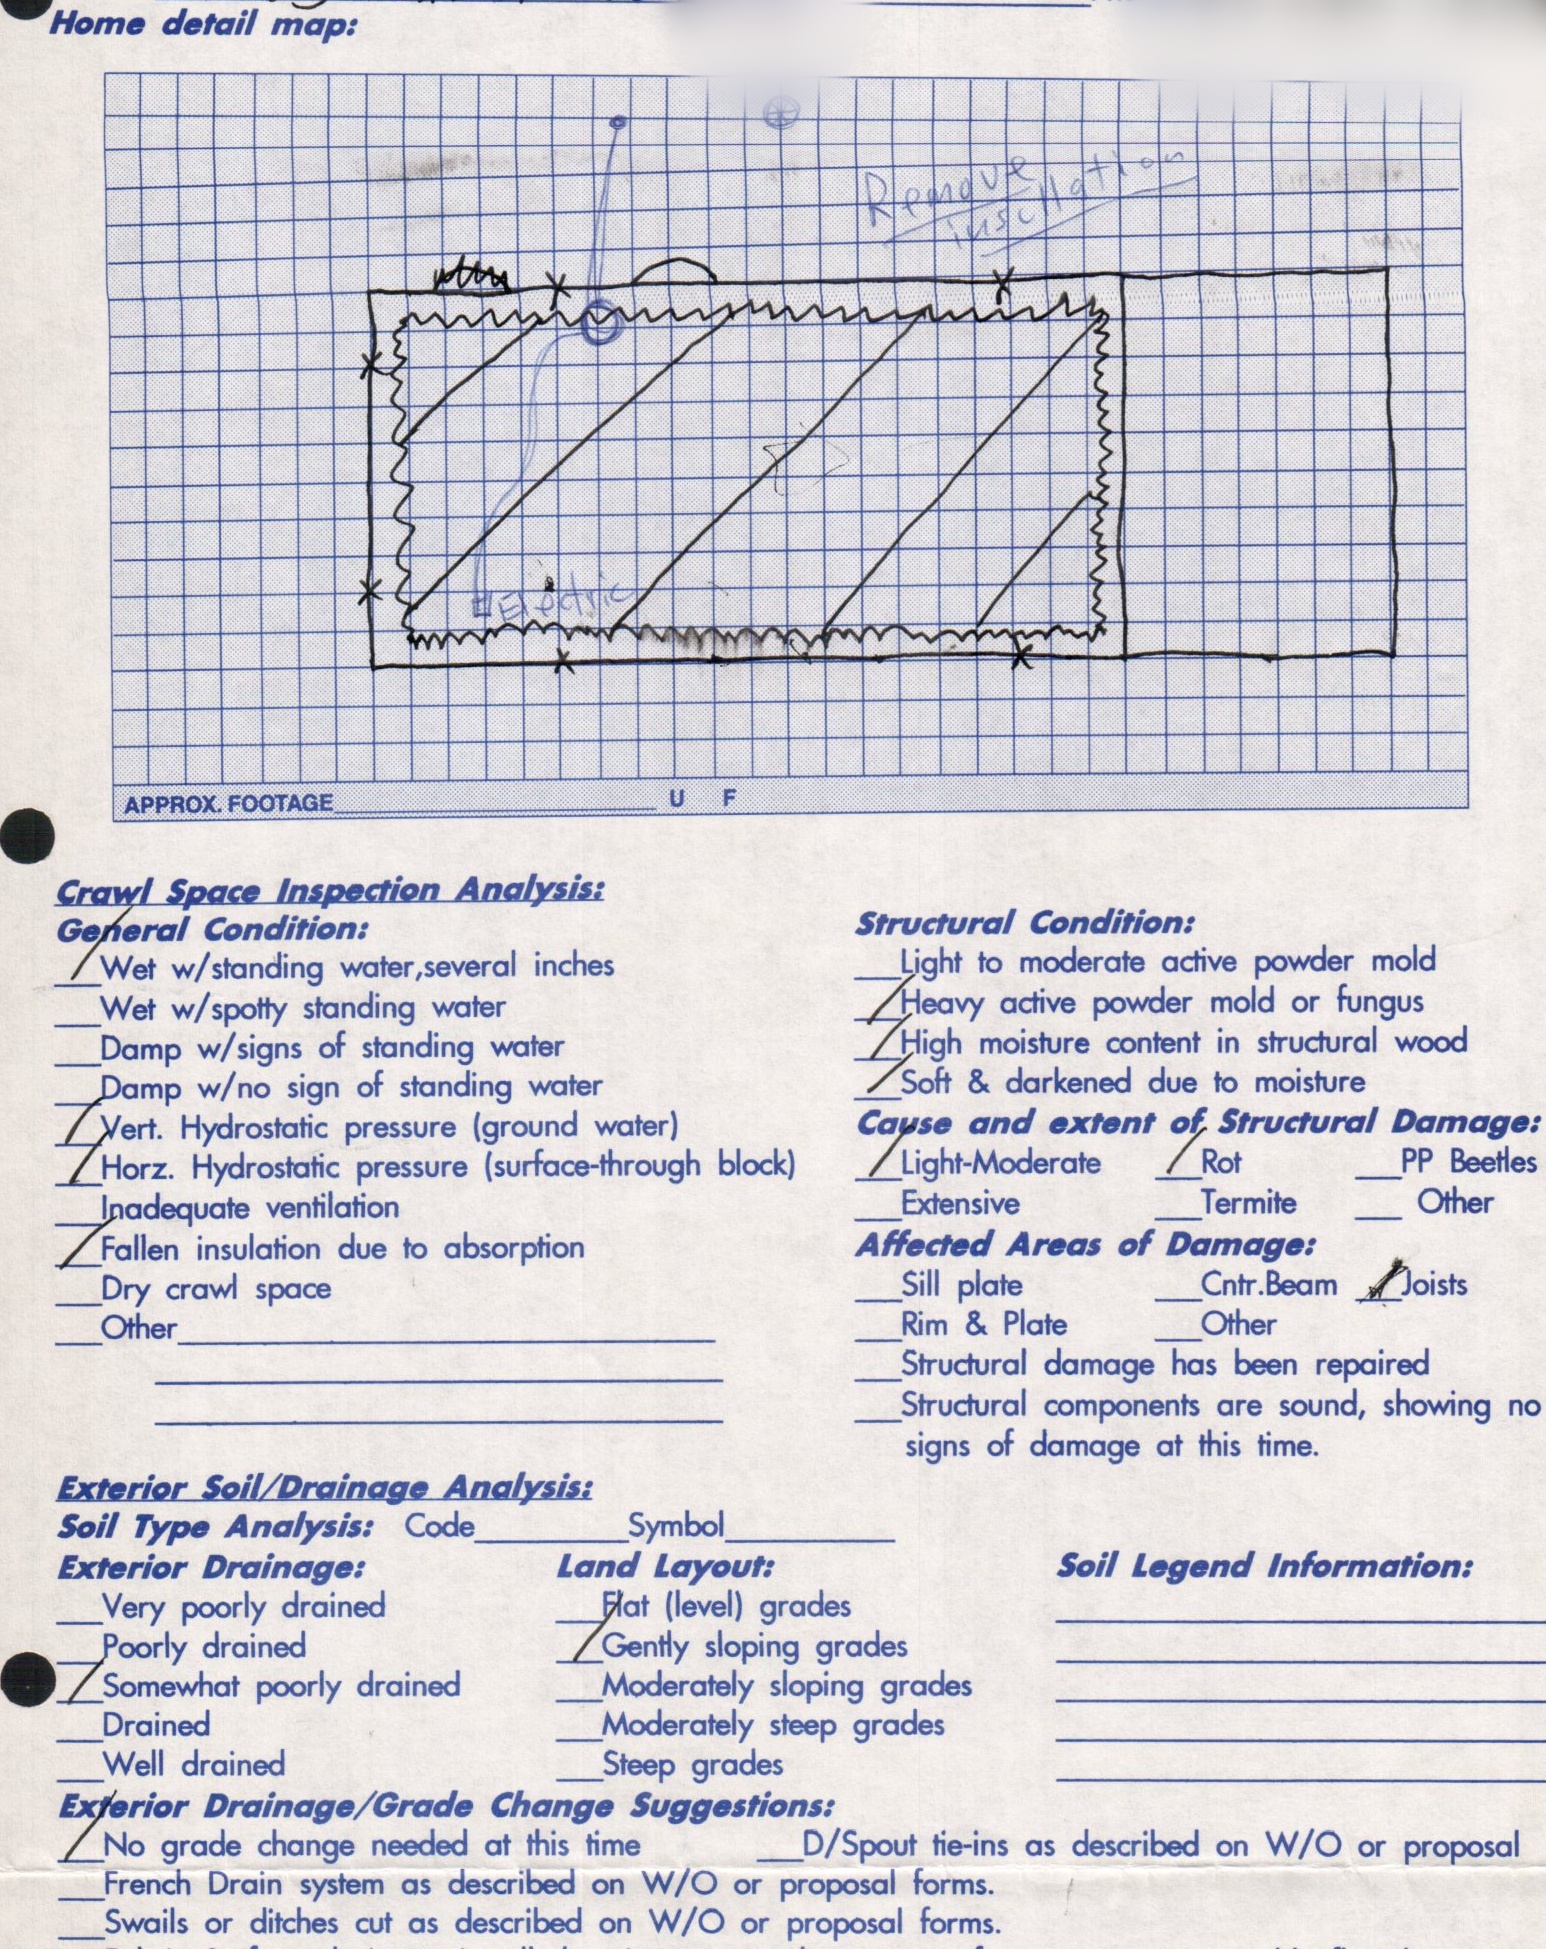 Home detail map:
Remove
insullation
Electric
APPROX. FOOTAGE U F
Crawl Space Inspection Analysis:
General Condition:
Wet w/standing water,several inches
Wet w/spotty standing water
Damp w/signs of standing water
Damp w/no sign of standing water
Vert. Hydrostatic pressure (ground water)
Horz. Hydrostatic pressure (surface-through block)
Inadequate ventilation
Fallen insulation due to absorption
Dry crawl space
Other
Structural Condition:
Light to moderate active powder mold
Heavy active powder mold or fungus
High moisture content in structural wood
Soft & darkened due to moisture
Cause and extent of Structural Damage:
Light-Moderate Rot PP Beetles
Extensive Termite Other
Affected Areas of Damage:
Sill plate Cntr.Beam Joists
Rim & Plate Other
Structural damage has been repaired
Structural components are sound, showing no
signs of damage at this time.
Exterior Soil/Drainage Analysis:
Soil Type Analysis: Code Symbol
Exterior Drainage:
Very poorly drained
Poorly drained
Somewhat poorly drained
Drained
Well drained
Land Layout:
Flat (level) grades
Gently sloping grades
Moderately sloping grades
Moderately steep grades
Steep grades
Soil Legend Information:
Exterior Drainage/Grade Change Suggestions:
No grade change needed at this time D/Spout tie-ins as described on W/O or proposal
French Drain system as described on W/O or proposal forms.
Swails or ditches cut as described on W/O or proposal forms.